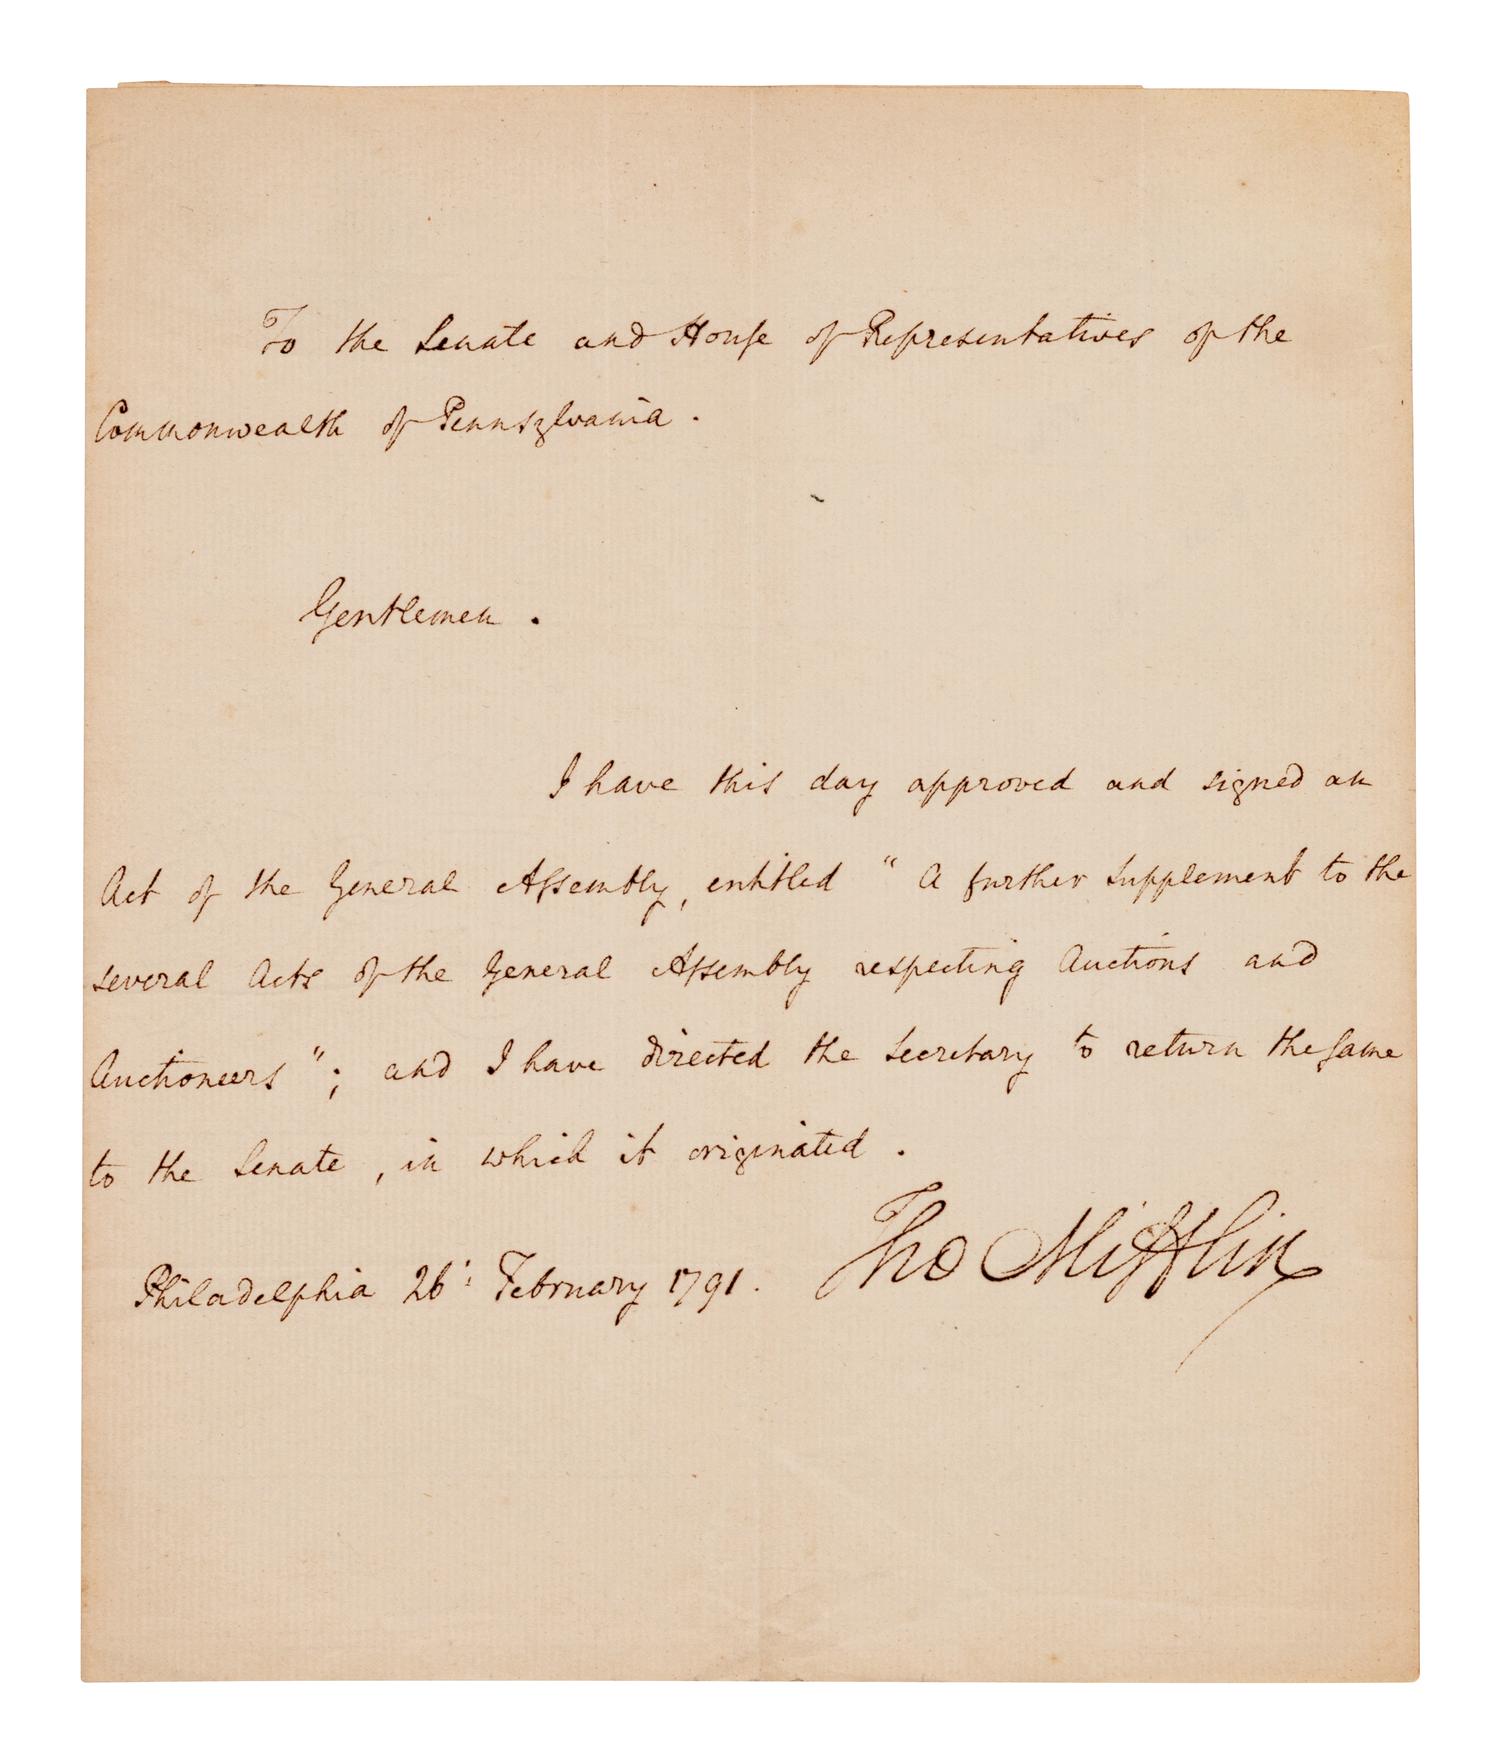 To the Senate and House of Representatives of the
Commonwealth of Pennsylvania.
Gentlemen.
I have this day approved and signed an
Act of the General Assembly, entitled "A further supplement to the
several Acts of the General Assembly respecting Auctions and
Auctioneers"; and I have directed the Secretary to return the same
to the Senate, in which it originated.
Tho Mifflin
Philadelphia 26: February 1791.